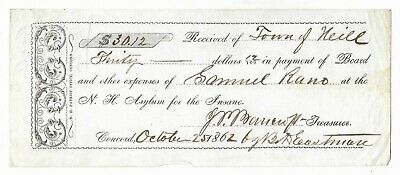 $30.12 Received of Town of Neill
Thirty dollars 12/100 in payment of Board
and other expenses of Samuel Rano at the
N. H. Asylum for the Insane.
J. P. Bancroft Treasurer.
Concord, October 25 1862 by B. Eastman